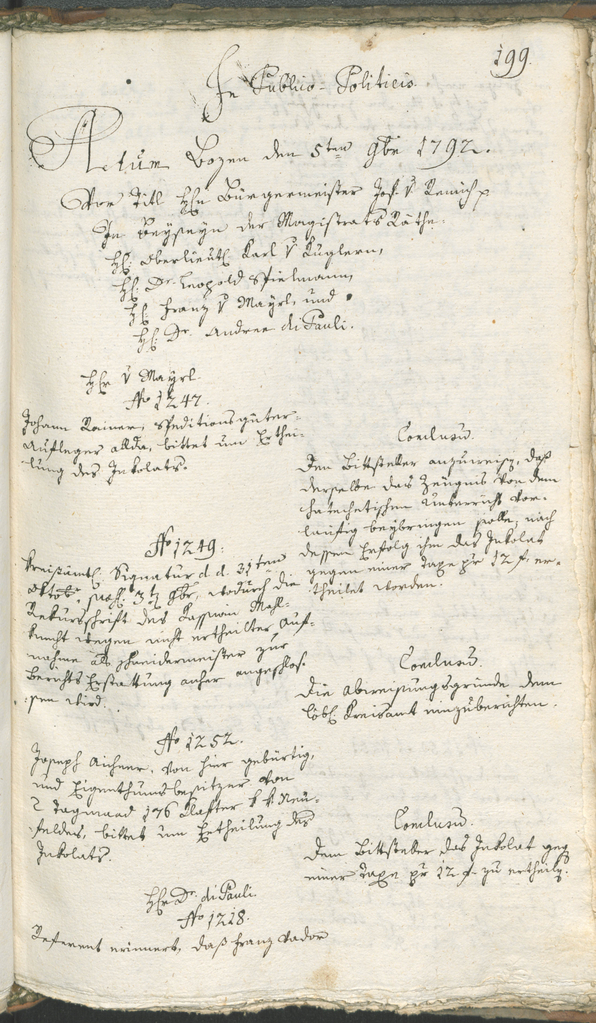 199.
In Publico-Politicis
Actum Bozen den 5ten 9br 1792.
Vor Titl Hrn Bürgermeister Jos. v Remich
In Beyseyn der Magistrats Räthe
H: Oberlieut: Karl v Kuglern,
H: Dr. Leopold Spielmann,
H: Franz v Mayrl, und
H: Dr. Andree di Pauli.
Hr v Mayrl
No 1247.
Johann Rainer, Speditionsgüter-
Aufleger allda, bittet um Erthei-
lung des Inkolats.
Conclusum.
Dem Bittsteller anzuweisen, daß
derselbe das Zeugnis von dem
katechetischen Unterricht vor-
läufig beybringen solle, nach
dessen Erfolg ihm das Inkolat
gegen einer Taxe pr 12 f. er-
theilet worden.
No 1249.
Kreisämtl. Signatur d. d. 31ten
Oktob. 9br, wodurch die
Rekursschrift des Kasswin Mahl-
knecht wegen nicht ertheilter Auf-
nahme als Schneidermeister zur
Berichts Erstattung anher angeschlos-
sen wird.
Conclusum.
Die Abweisungsgründe dem
löbl. Kreisamt einzuberichten.
No 1252.
Joseph Aichner, von hier gebürtig,
und Eigenthumsbesitzer von
2 Tagmaad 176 Klafter
feldes, bittet um Ertheilung des
Inkolats.
Conclusum.
Dem Bittsteller das Inkolat geg
einer Taxe pr 12 f. zu ertheilen.
Hr Dr. di Pauli
No 1218.
Referent erinnert, daß Franz Vador